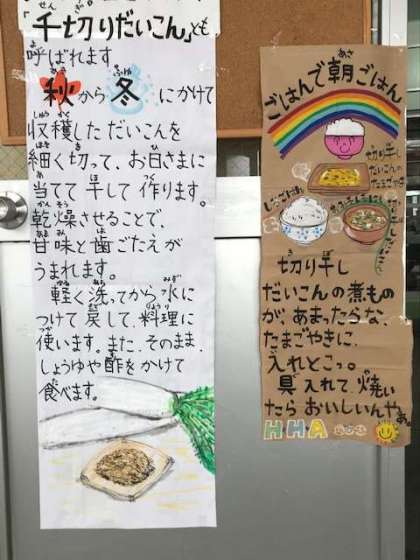 千切りだいこん」とも
呼ばれます
秋から冬にかけて
収穫しただいこんを
細く切って、お日さまに
当てて干して作ります。
乾燥させることで、
甘味と歯ごたえが
うまれます。
軽く洗ってから水に
つけて戻して、料理に
使います。また、そのまま、
しょうゆや酢をかけて
食べます。
ごはんで朝ごはん
切り干し
だいこんの
たまごやき
切り干し
だいこんの煮もの
が、あまったらな、
たまごやきに、
入れとこっ。
具入れて焼い
たらおいしいんやぁ。
HHA